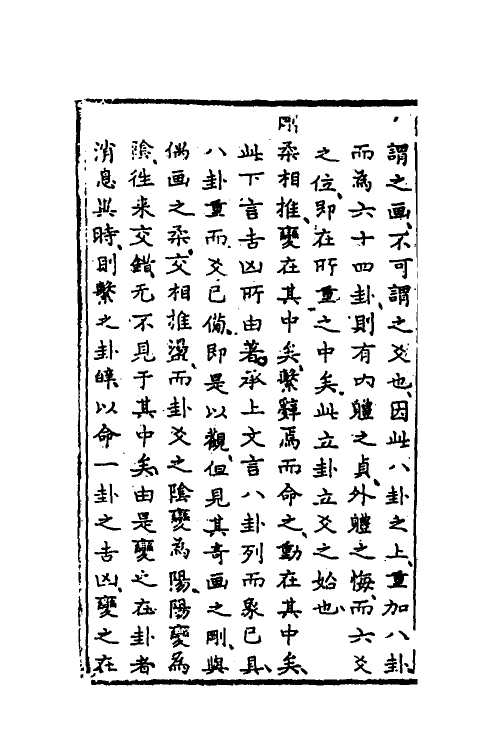 謂之画、不可謂之爻也、因此八卦之上、重加八卦、
而為六十四卦、則有内體之貞、外體之悔、而六爻
之位、即在所重之中矣、此立卦立爻之始也、
剛柔相推、變在其中矣、繫辭焉而命之、動在其中矣、
此下言吉凶所由著、承上文言八卦列而象已具、
八卦重而爻已備、即是以觀、但見其奇画之剛、與
偶画之柔、交相推盪、而卦爻之陰變為陽、陽變為
陰、徃来交錯、无不見于其中矣、由是變之在卦者
消息與時、則繫之卦辞、以命一卦之吉凶、變之在